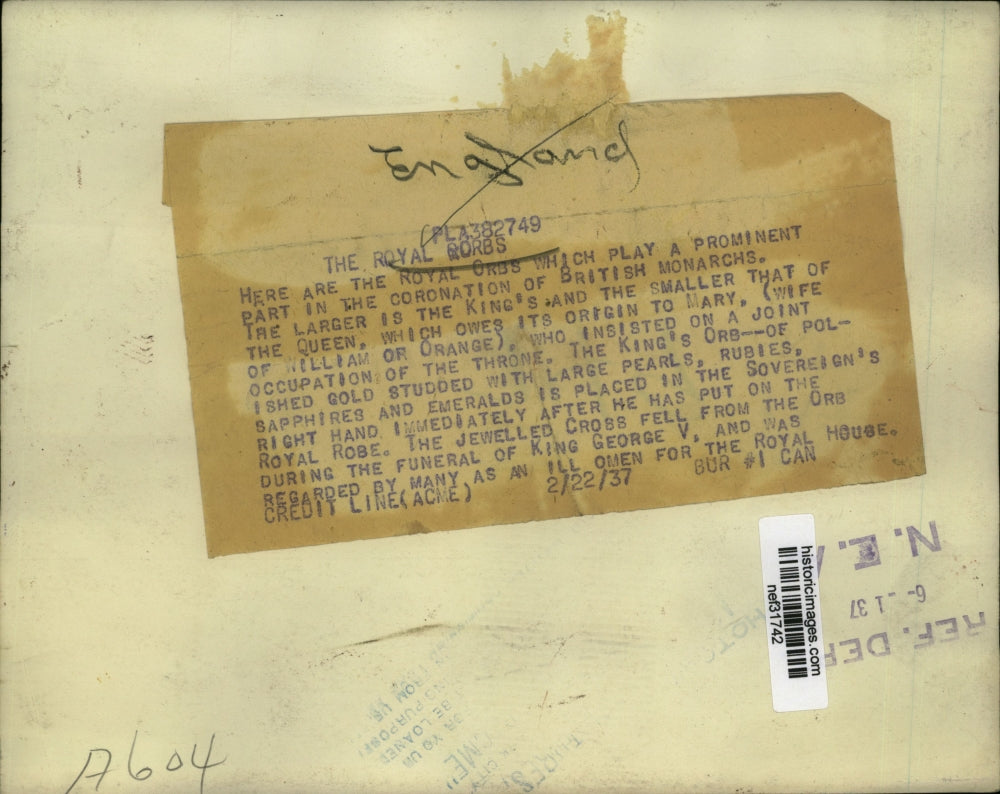 England
PLA382749
THE ROYAL QORBS
HERE ARE THE ROYAL ORBS WHICH PLAY A PROMINENT
PART IN THE CORONATION OF BRITISH MONARCHS.
THE LARGER IS THE KING'S AND THE SMALLER THAT OF
THE QUEEN, WHICH OWES ITS ORIGIN TO MARY, (WIFE
OF WILLIAM OR ORANGE), WHO INSISTED ON A JOINT
OCCUPATION OF THE THRONE. THE KING'S ORB--OF POL-
ISHED GOLD STUDDED WITH LARGE PEARLS, RUBIES,
SAPPHIRES AND EMERALDS IS PLACED IN THE SOVEREIGN'S
RIGHT HAND IMMEDIATELY AFTER HE HAS PUT ON THE
ROYAL ROBE. THE JEWELLED CROSS FELL FROM THE ORB
DURING THE FUNERAL OF KING GEORGE V, AND WAS
REGARDED BY MANY AS AN ILL OMEN FOR THE ROYAL HOUSE.
CREDIT LINE(ACME) 2/22/37 BUR #1 CAN
N.E.
6- 1 37
REF. DEP
historicimages.com
nef31742
FROM US.
PURPOSE
BE LOANED
A604